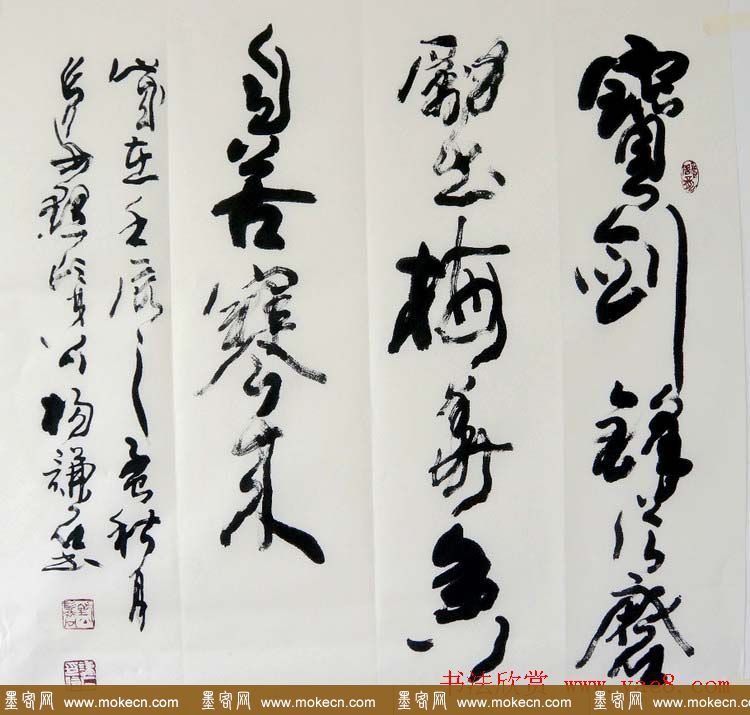 寶劍鋒從磨
勵出梅華香
自苦寒來
歲在壬辰之孟秋月
楊謙
书法欣赏 www.yac8.com
墨客网 www.mokecn.com 墨客网 www.mokecn.com 墨客网 www.mokecn.com 墨客网 www.mokecn.com